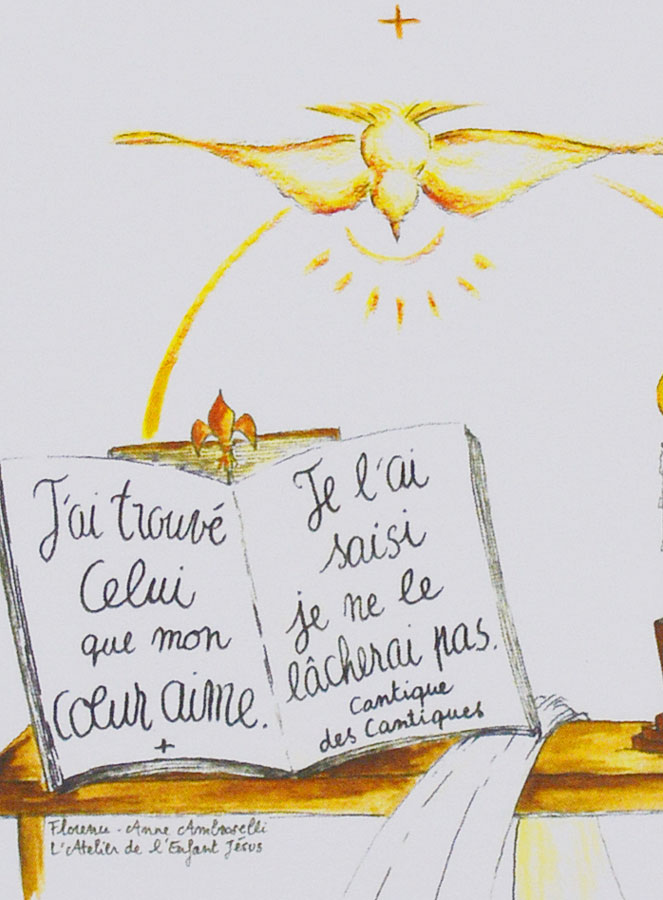 J'ai trouvé
Celui
que mon
cœur aime.
Je l'ai
saisi
je ne le
lâcherai pas.
Cantique
des Cantiques
Anne
L'Atelier de l'Enfant Jésus